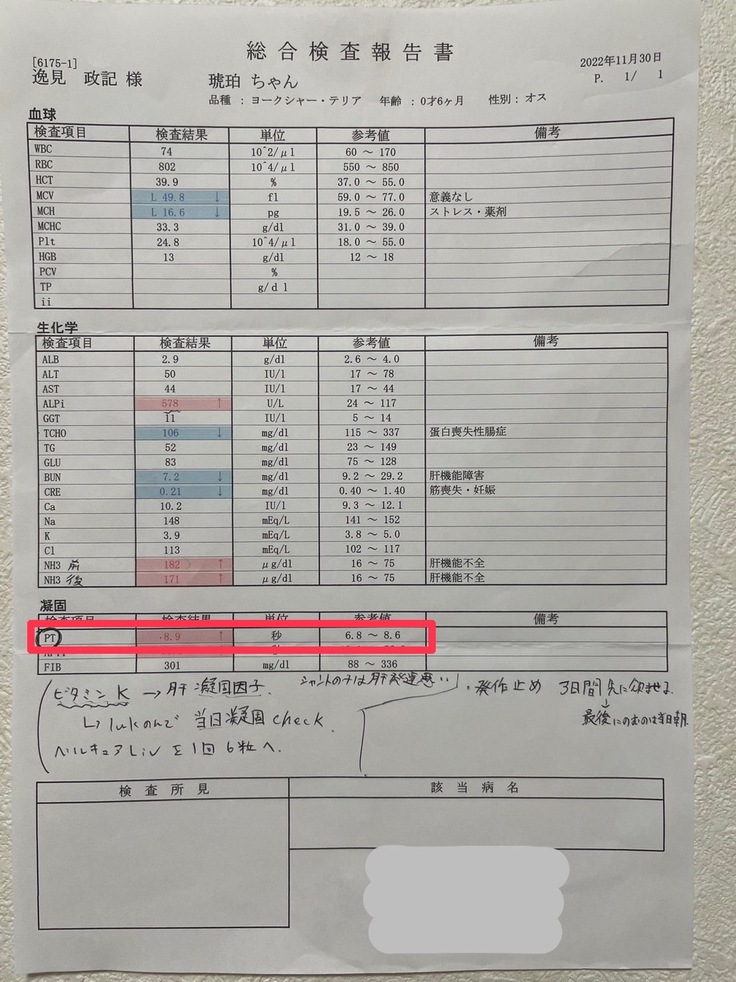 総合検査報告書
[6175-1]
2022年11月30日
逸見 政記 様 琥珀 ちゃん
P. 1/ 1
品種 : ヨークシャー・テリア 年齢 : 0才6ヶ月 性別 : オス
血球
検査項目 検査結果 単位 参考値 備考
WBC 74 10^2/μl 60 ～ 170
RBC 802 10^4/μl 550 ～ 850
HCT 39.9 % 37.0 ～ 55.0
MCV L 49.8 ↓ fl 59.0 ～ 77.0 意義なし
MCH L 16.6 ↓ pg 19.5 ～ 26.0 ストレス・薬剤
MCHC 33.3 g/dl 31.0 ～ 39.0
Plt 24.8 10^4/μl 18.0 ～ 55.0
HGB 13 g/dl 12 ～ 18
PCV %
TP g/dl
ii
生化学
検査項目 検査結果 単位 参考値 備考
ALB 2.9 g/dl 2.6 ～ 4.0
ALT 50 IU/l 17 ～ 78
AST 44 IU/l 17 ～ 44
ALPi 578 ↑ U/L 24 ～ 117
GGT 11 IU/l 5 ～ 14
TCHO 106 ↓ mg/dl 115 ～ 337 蛋白喪失性腸症
TG 52 mg/dl 23 ～ 149
GLU 83 mg/dl 75 ～ 128
BUN 7.2 ↓ mg/dl 9.2 ～ 29.2 肝機能障害
CRE 0.21 ↓ mg/dl 0.40 ～ 1.40 筋喪失・妊娠
Ca 10.2 IU/l 9.3 ～ 12.1
Na 148 mEq/L 141 ～ 152
K 3.9 mEq/L 3.8 ～ 5.0
Cl 113 mEq/L 102 ～ 117
NH3 前 182 ↑ μg/dl 16 ～ 75 肝機能不全
NH3 後 171 ↑ μg/dl 16 ～ 75 肝機能不全
凝固
検査項目 検査結果 単位 参考値 備考
PT 8.9 ↑ 秒 6.8 ～ 8.6
FIB 301 mg/dl 88 ～ 336
ビタミンK → 肝 凝固因子. シャントの子は肝発達悪い
・発作止め 3日間先に飲ませる
↓
最後にのむのは当日朝.
↳ 1wkのんで 当日凝固check.
ベルキュアLivを1回6粒へ.
検査所見 該当病名